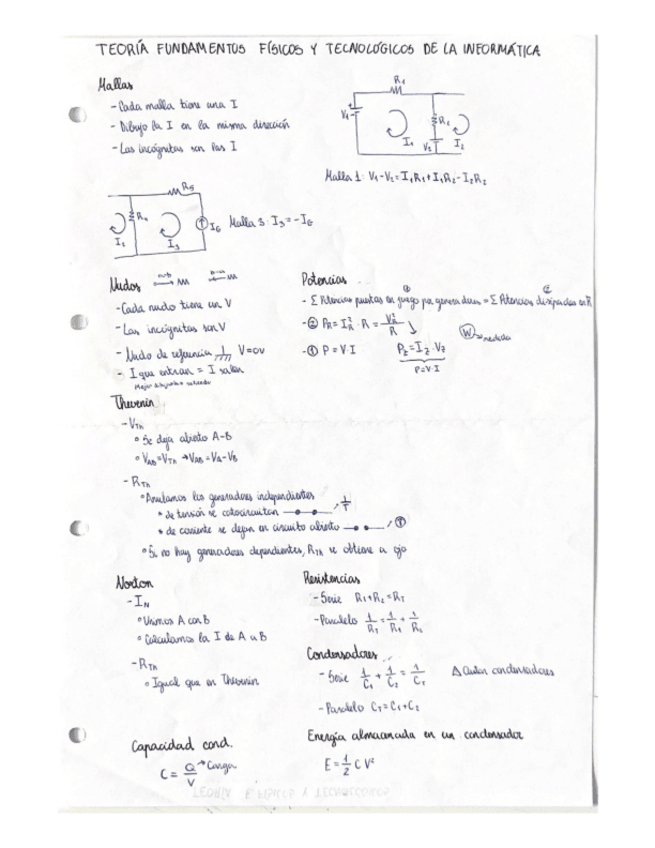 TEORÍA FUNDAMENTOS FÍSICOS Y TECNOLÓGICOS DE LA INFORMÁTICA
Mallas
- Cada malla tiene una I
- Dibujo la I en la misma dirección
- Las incógnitas son las I
R₁
V₁
R₂
I₁
V₂
I₂
Malla 1: V₁-V₂=I₁R₁+I₁R₂-I₂R₂
R₅
I₂
I₃
I_G
Malla 3: I₃=-I_G
Nudos
- Cada nudo tiene un V
- Las incógnitas son V
- Nudo de referencia V=0V
- I que entran = I salen
Potencias
- Σ Potencias puestas en juego por generadores = Σ Potencias disipadas en R
① ②
- ② P_R = I_R² · R = V_R²/R
P_Z = I_Z · V_Z
P=V·I
W → medida
- ① P = V·I
Thevenin
- V_Th
° Se deja abierto A-B
° V_AB = V_Th → V_AB = V_A-V_B
- R_Th
° Anulamos los generadores independientes
* de tensión se cotocircuitan
* de corriente se dejan en circuito abierto
° Si no hay generadores dependientes, R_Th se obtiene a ojo
Norton
- I_N
° Unimos A con B
° Calculamos la I de A a B
- R_Th
° Igual que en Thevenin
Resistencias
- Serie R₁+R₂=R_T
- Paralelo 1/R_T = 1/R₁ + 1/R₂
Condensadores
- Serie 1/C₁ + 1/C₂ = 1/C_T
- Paralelo C_T=C₁+C₂
Capacidad cond.
C = Q/V → Carga
Energía almacenada en un condensador
E = 1/2 C V²